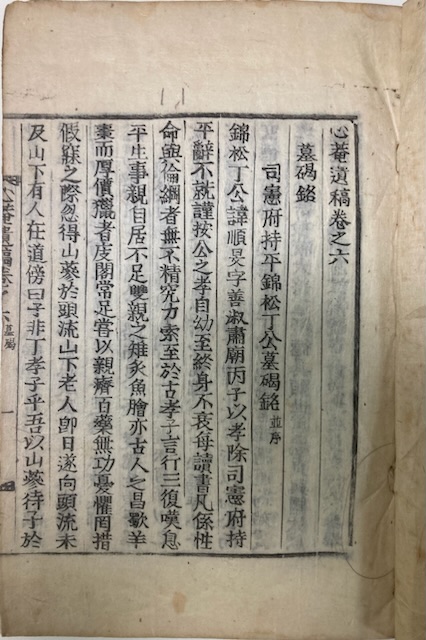 心菴遺稿卷之六
墓碣銘
司憲府持平錦松丁公墓碣銘 並序
錦松丁公諱順字善淑肅廟丙子以孝除司憲府持
平辭不就謹按公之孝自幼至終身不衰每讀書凡係性
命與倫綱者無不精究力索至於古孝子言行三復嘆息
平生事親自居不足雙親之雉炙魚膾亦古人之昌歜羊
棗而厚償獵者庋閣常足嘗以親癠百藥無功憂懼罔措
假寐之際忽得山蔘於頭流山下老人卽日遂向頭流未
及山下有人在道傍曰子非丁孝子乎吾以山蔘待子於
心菴遺稿卷之六 墓碣 一